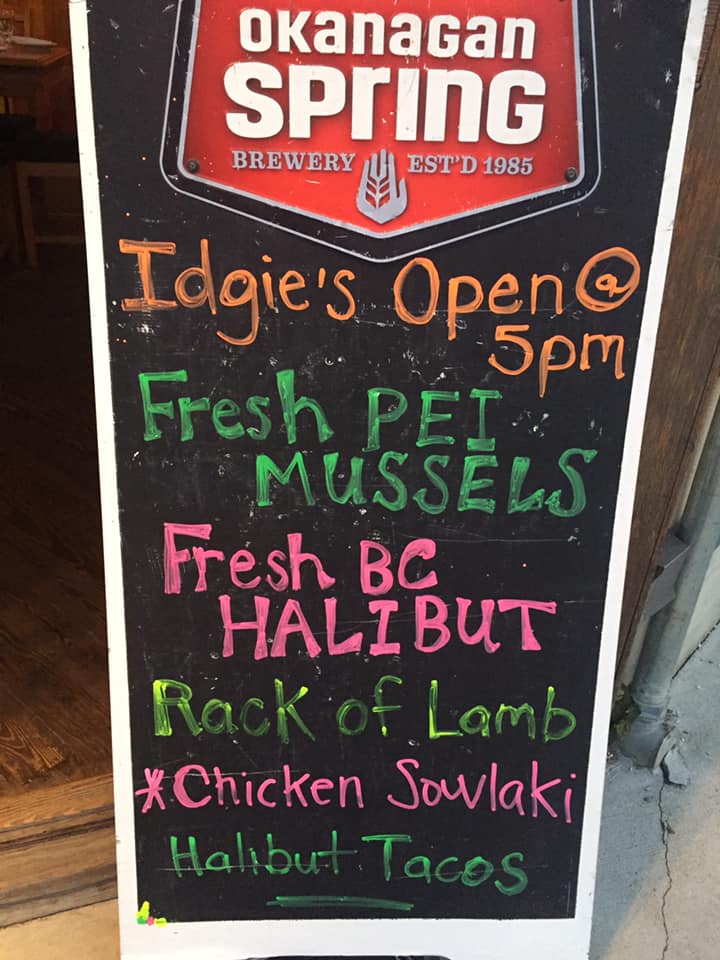 OKanaGan
SPrING
BREWERY EST'D 1985
Idgie's Open @
5pm
Fresh PEI
MUSSELS
Fresh BC
HALIBUT
Rack of Lamb
*Chicken Sowlaki
Halibut Tacos